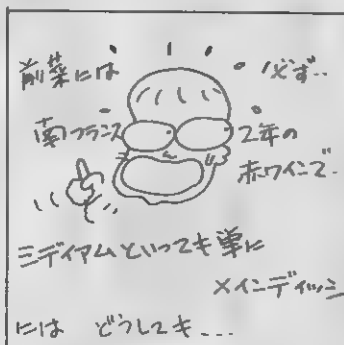 前菜には
必ず‥
南フランス
2年の
赤ワインで‥
ミディアムといっても単に
メインディッシュ
には どうしても‥‥